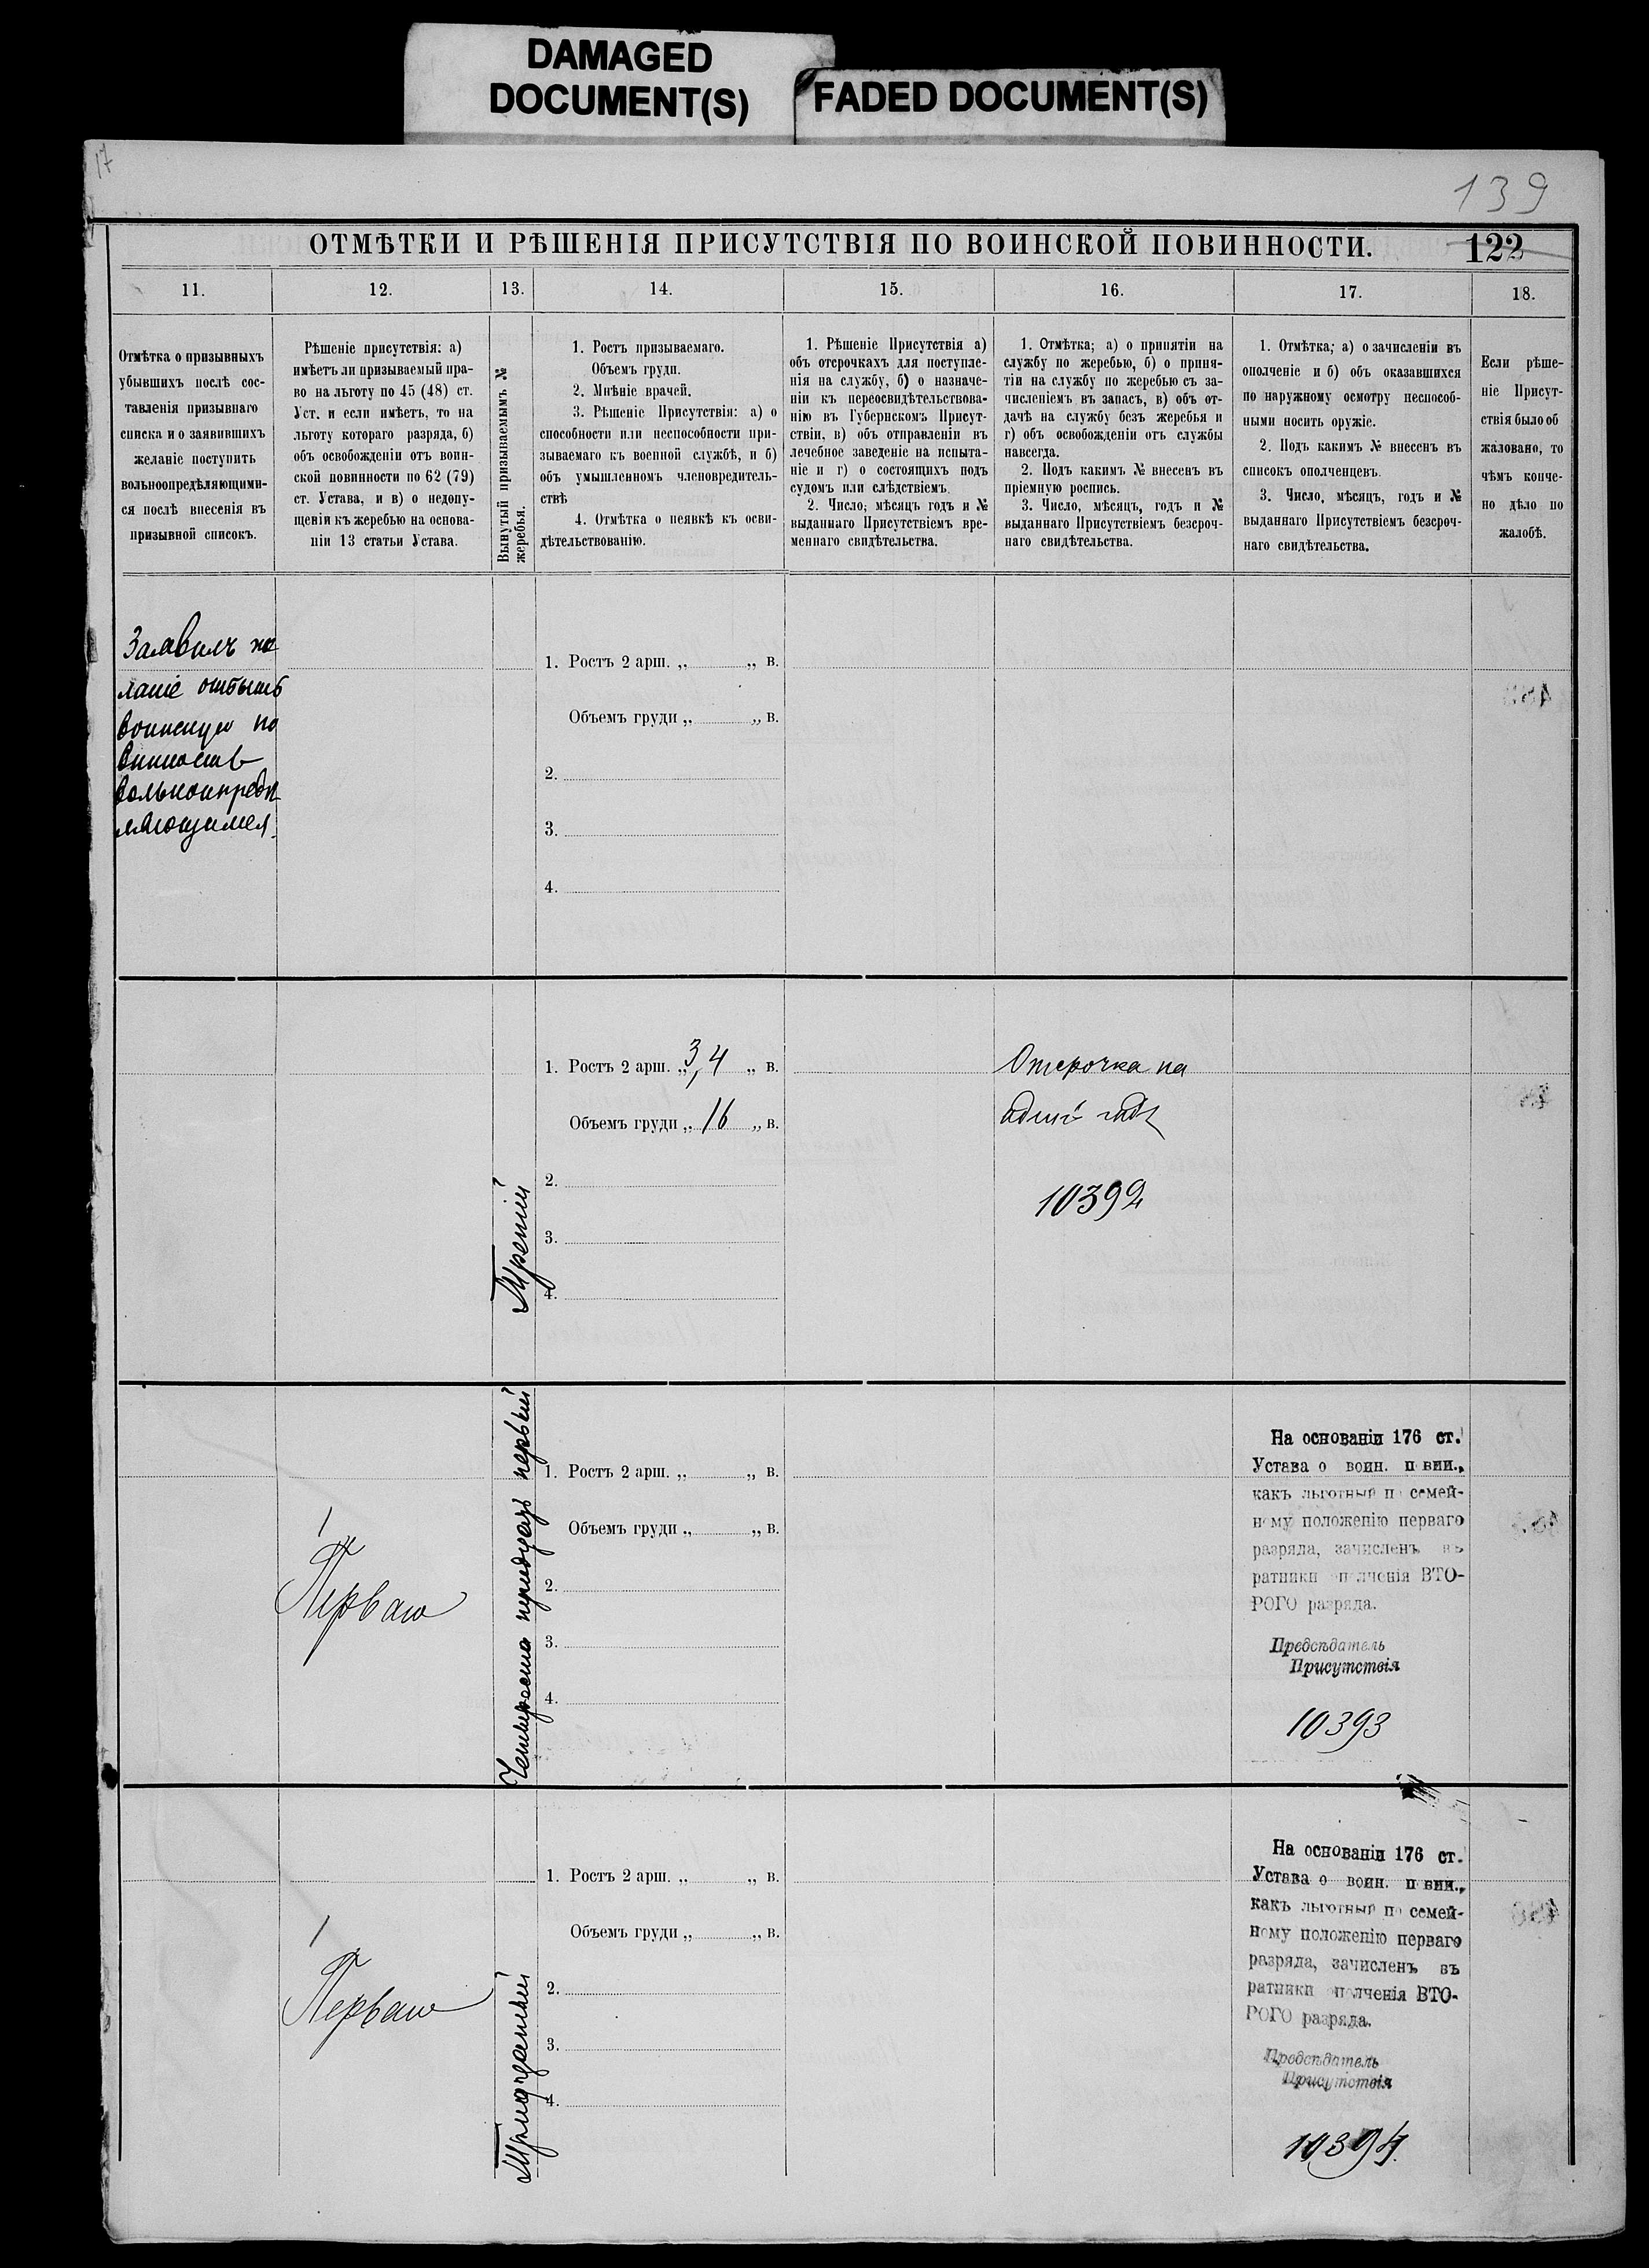 DAMAGED
DOCUMENT(S)
FADED DOCUMENT(S)
17
139
ОТМѢТКИ И РѢШЕНІЯ ПРИСУТСТВІЯ ПО ВОИНСКОЙ ПОВИННОСТИ.
122
11.
12.
13.
14.
15.
16.
17.
18.
Отмѣтка о призывныхъ
убывшихъ послѣ сос-
тавленія призывнаго
списка и о заявившихъ
желаніе поступить
вольноопредѣляющими-
ся послѣ внесенія въ
призывной списокъ.
Рѣшеніе присутствія: а)
имѣетъ ли призываемый пра-
во на льготу по 45 (48) ст.
Уст. и если имѣетъ, то на
льготу котораго разряда, б)
объ освобожденіи отъ воин-
ской повинности по 62 (79)
ст. Устава, и в) о недопу-
щеніи къ жеребью на основа-
ніи 13 статьи Устава.
Вынутый призываемымъ №
жеребья.
1. Ростъ призываемаго.
Объемъ груди.
2. Мнѣніе врачей.
3. Рѣшеніе Присутствія: а) о
способности или неспособности при-
зываемаго къ военной службѣ, и б)
объ умышленномъ членовредитель-
ствѣ
4. Отмѣтка о неявкѣ къ осви-
дѣтельствованію.
1. Рѣшеніе Присутствія а)
объ отсрочкахъ для поступле-
нія на службу, б) о назначе-
ніи къ переосвидѣтельствова-
нію въ Губернскомъ Присут-
ствіи, в) объ отправленіи въ
лечебное заведеніе на испыта-
ніе и г) о состоящихъ подъ
судомъ или слѣдствіемъ.
2. Число, мѣсяцъ годъ и №
выданнаго Присутствіемъ вре-
меннаго свидѣтельства.
1. Отмѣтка; а) о принятіи на
службу по жеребью, б) о приня-
тіи на службу по жеребью съ за-
численіемъ въ запасъ, в) объ от-
дачѣ на службу безъ жеребья и
г) объ освобожденіи отъ службы
навсегда.
2. Подъ какимъ № внесенъ въ
пріемную роспись.
3. Число, мѣсяцъ, годъ и №
выданнаго Присутствіемъ безсроч-
наго свидѣтельства.
1. Отмѣтка; а) о зачисленіи въ
ополченіе и б) объ оказавшихся
по наружному осмотру неспособ-
ными носить оружіе.
2. Подъ какимъ № внесенъ въ
списокъ ополченцевъ.
3. Число, мѣсяцъ, годъ и №
выданнаго Присутствіемъ безсроч-
наго свидѣтельства.
Если рѣше-
ніе Присут-
ствія было об
жаловано, то
чѣмъ конче-
но дѣло по
жалобѣ.
Заявилъ же
ланіе отбыть
воинскую по
винность
вольноопредѣ
ляющимся.
1. Ростъ 2 арш. „ „ в.
Объемъ груди „ „ в.
2.
3.
4.
Третій
1. Ростъ 2 арш. „ 3,4 „ в.
Объемъ груди „ 16 „ в.
2.
3.
4.
Отсрочка на
одинъ годъ
10392
1
Перваго
Четыреста тридцать первый
1. Ростъ 2 арш. „ „ в.
Объемъ груди „ „ в.
2.
3.
4.
На основаніи 176 ст.
Устава о воин. п вин.,
какъ льготный п семей-
ному положенію перваго
разряда, зачисленъ въ
ратники п лченія ВТО-
РОГО разряда.
Предсѣдатель
Присутствія
10393
1
Перваго
Тридцатый
1. Ростъ 2 арш. „ „ в.
Объемъ груди „ „ в.
2.
3.
4.
На основаніи 176 ст.
Устава о воин. п вин.,
какъ льготный по семей-
ному положенію перваго
разряда, зачисленъ въ
ратники ополченія ВТО-
РОГО разряда.
Предсѣдатель
Присутствія
10394.